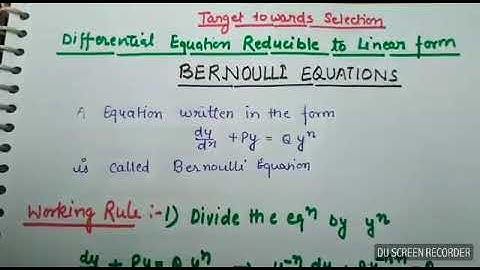 Target towards Selection
Differential Equation Reducible to Linear form
BERNOULLI EQUATIONS
A Equation written in the form
dy/dx + Py = Q yⁿ
is called Bernoulli Equation
Working Rule :- 1) Divide the eqⁿ by yⁿ
dy + Py = Q yⁿ ⇒ y⁻ⁿ dy
DU SCREEN RECORDER